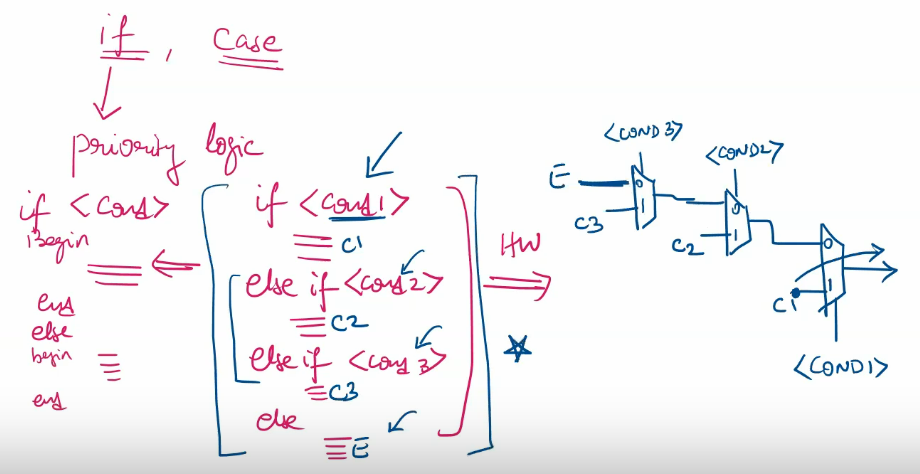 if, Case
priority logic
if <Cond>
Begin
end
else
begin
end
if <Cond1>
C1
else if <Cond2>
C2
else if <Cond3>
C3
else
E
HW
<COND3>
<COND2>
E
0
C3
1
0
C2
1
0
C1
1
<COND1>